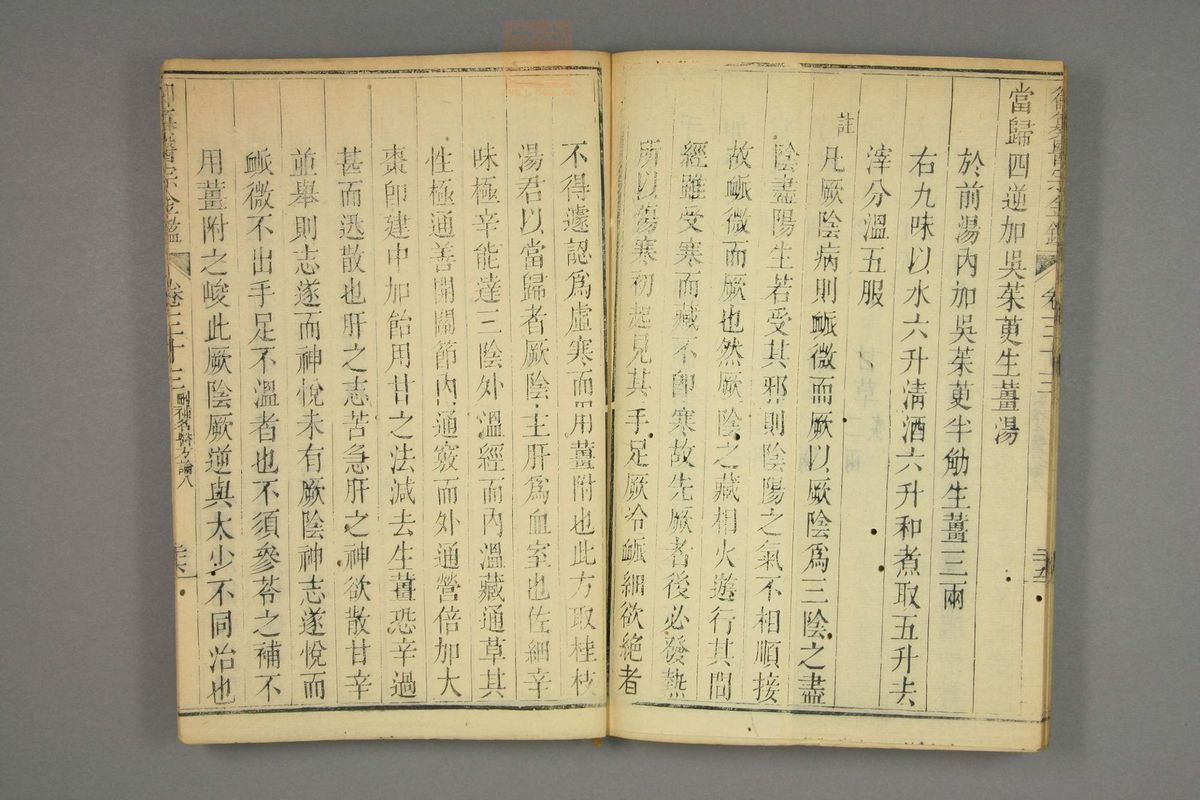 當歸四逆加吳茱萸生薑湯
於前湯內加吳茱萸半觔生薑三兩
右九味以水六升清酒六升和煮取五升去
滓分溫五服
註
凡厥陰病則脈微而厥以厥陰爲三陰之盡
陰盡陽生若受其邪則陰陽之氣不相順接
故脈微而厥也然厥陰之藏相火遊行其間
經雖受寒而藏不卽寒故先厥者後必發熱
所以傷寒初起見其手足厥冷脈細欲絶者
不得遽認爲虛寒而用薑附也此方取桂枝
湯君以當歸者厥陰主肝爲血室也佐細辛
味極辛能達三陰外溫經而內溫藏通草其
性極通善開關節內通竅而外通營倍加大
棗卽建中加飴用甘之法減去生薑恐辛過
甚而迅散也肝之志苦急肝之神欲散甘辛
並舉則志遂而神悅未有厥陰神志遂悅而
脈微不出手足不溫者也不須參苓之補不
用薑附之峻此厥陰厥逆與太少不同治也
御纂醫宗金鑑
卷三十三
刪補名醫方論八